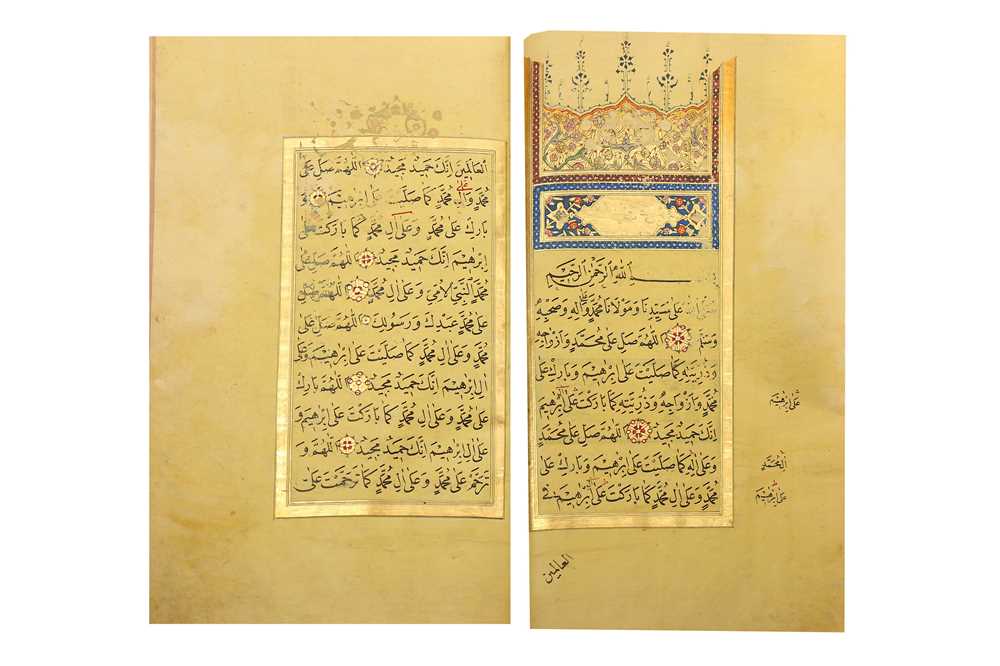 بسم الله الرحمن الرحيم
صلى الله على سيدنا ومولانا محمد وعلى آله وصحبه
وسلم اللهم صل على محمد وازواجه
وذريته كما صليت على ابرهيم وبارك على
محمد وازواجه وذريته كما باركت على ال ابرهيم
انك حميد مجيد اللهم صل على محمد
وعلى اله كما صليت على ابرهيم وبارك على
محمد وعلى ال محمد كما باركت على ال ابرهيم في
العالمين
على ابرهيم
ال محمد
على ابرهيم
العالمين انك حميد مجيد اللهم صل على
محمد وعلى ال محمد كما صليت على ابرهيم و
بارك على محمد وعلى ال محمد كما باركت على
ابرهيم انك حميد مجيد اللهم صل على
محمد النبي الامي وعلى ال محمد اللهم صل
على محمد عبدك ورسولك اللهم صل على
محمد وعلى ال محمد كما صليت على ابرهيم وعلى
ال ابرهيم انك حميد مجيد اللهم بارك
على محمد وعلى ال محمد كما باركت على ابرهيم و
على ال ابرهيم انك حميد مجيد اللهم و
ترحم على محمد وعلى ال محمد كما ترحمت على